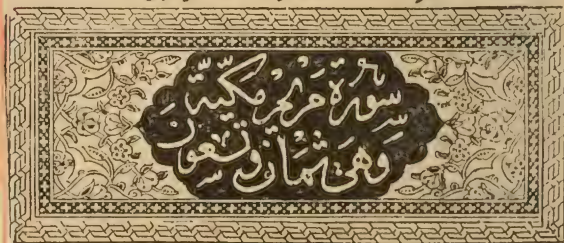 سُورَةُ مَرْيَمَ مَكِّيَّة
وَهِيَ ثَمَانٍ وَتِسْعُونَ